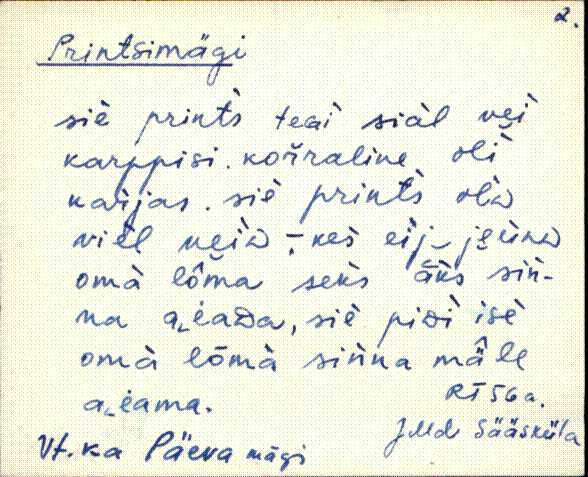 2.
Printsimägi
siè prints̀ teai siàl nei
karppisi. kor̆raline oli
karjas. siè prints̀ olà
viel neià - kes eij jeüna
omà lôma seks äks sin-
na aɪada, siè pidi isè
omà lōmà sinna mäle
aɪama.
RT 56 a.
J. Md. Sääsküla
Vt. ka Päeva mägi